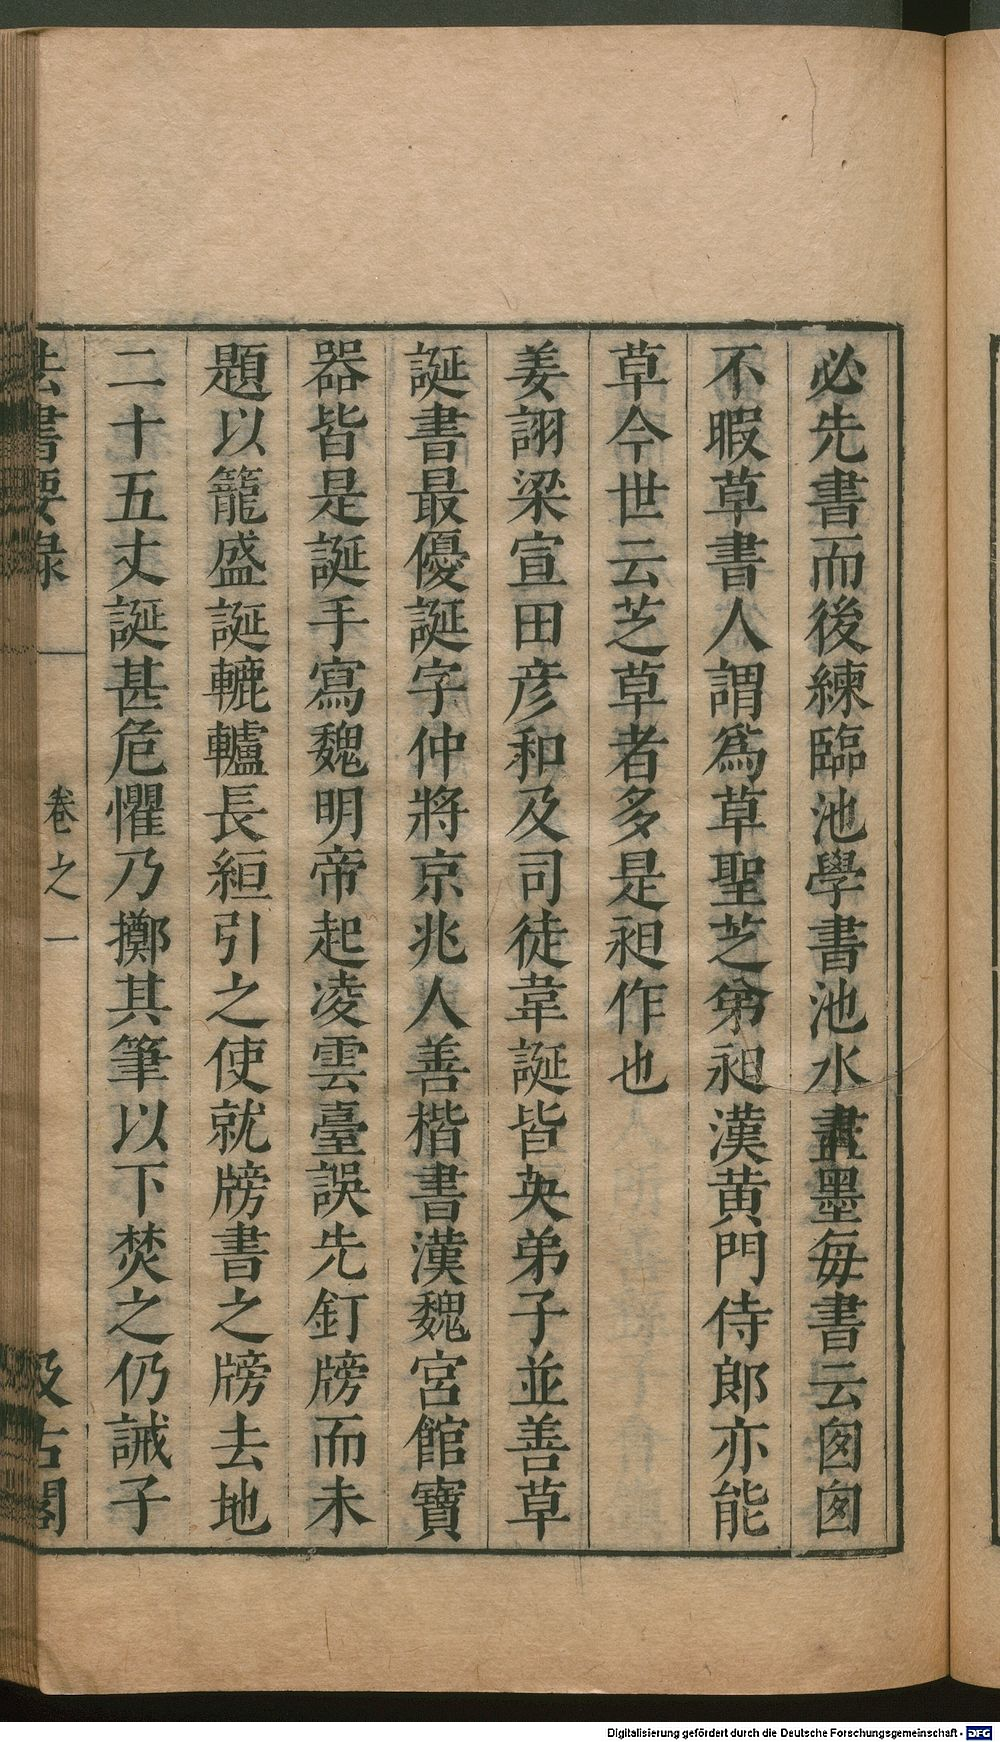 必先書而後練臨池學書池水盡墨每書云匆匆
不暇草書人謂爲草聖芝弟昶漢黄門侍郎亦能
草今世云芝草者多是昶作也
姜詡梁宣田彦和及司徒韋誕皆英弟子並善草
誕書最優誕字仲將京兆人善楷書漢魏宮館寶
器皆是誕手寫魏明帝起凌雲臺誤先釘牓而未
題以籠盛誕轆轤長絙引之使就牓書之牓去地
二十五丈誕甚危懼乃擲其筆以下焚之仍誡子
法書要録 卷之一 汲古閣
Digitalisierung gefördert durch die Deutsche Forschungsgemeinschaft - DFG